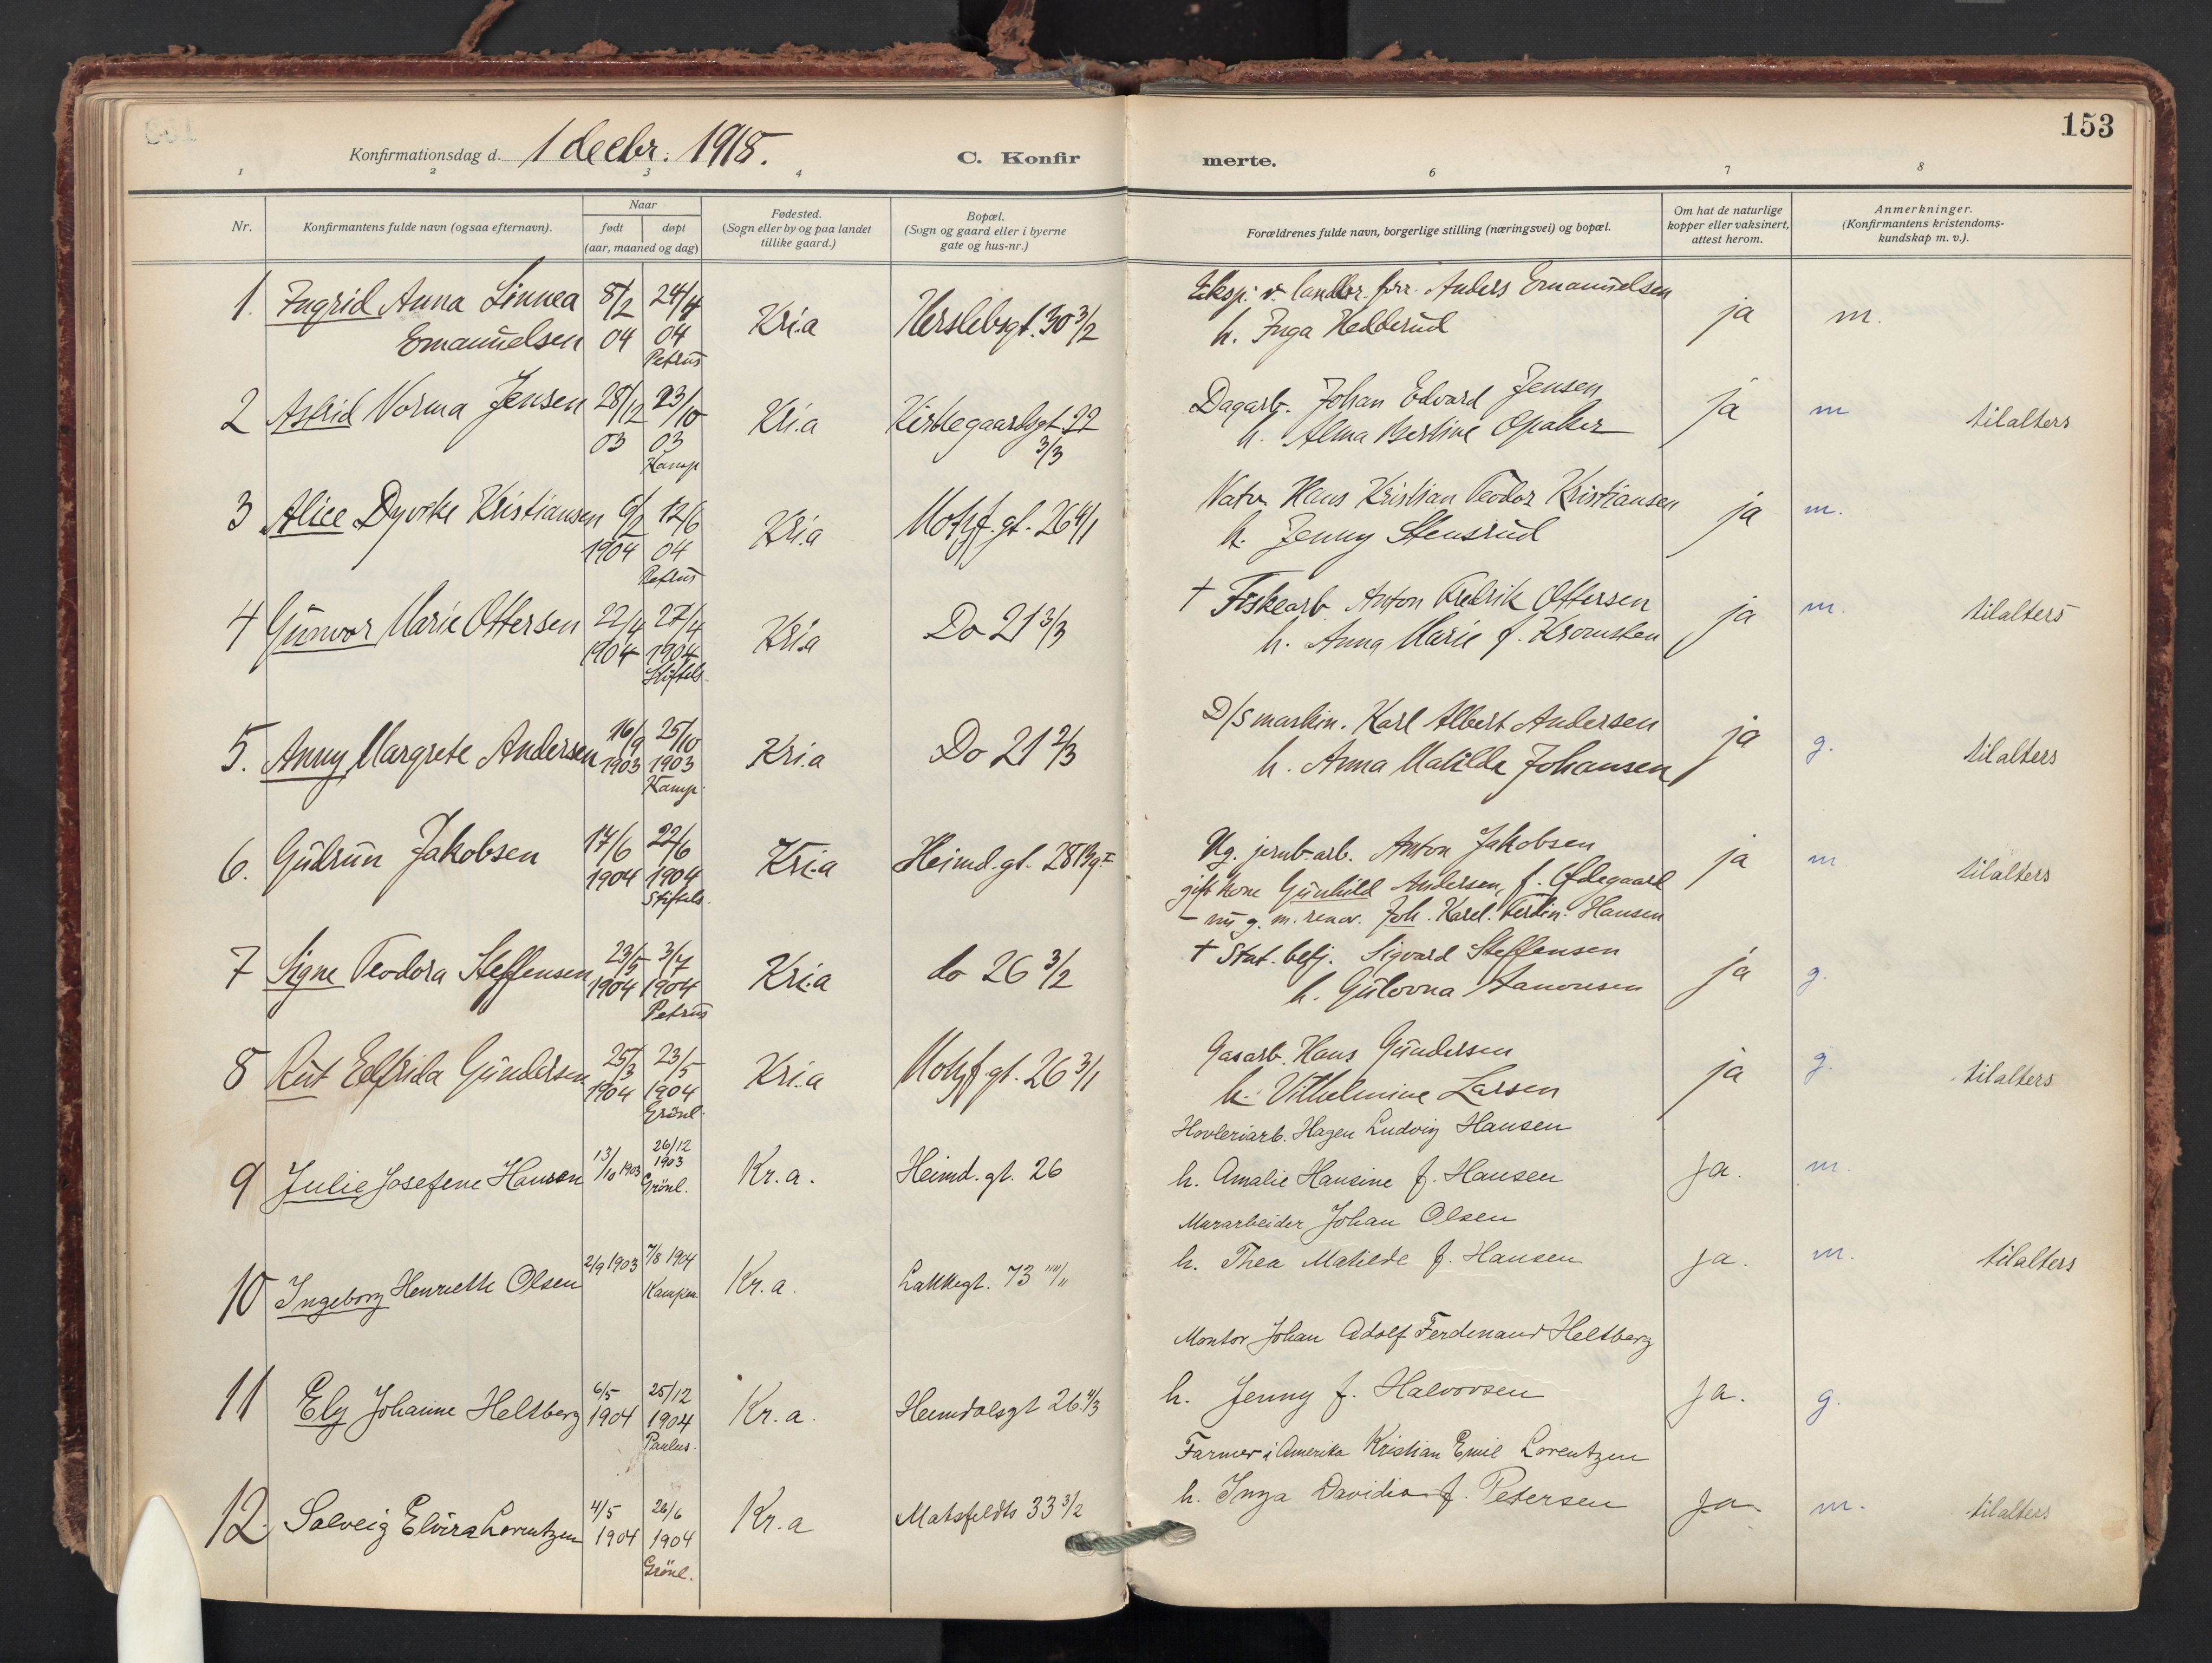 153
Konfirmationsdag d. 1 decbr. 1918.
C. Konfir
merte.
1 2 3 4 6 7 8
Nr.
Konfirmantens fulde navn (ogsaa efternavn).
Naar
født døpt
(aar, maaned og dag)
Fødested.
(Sogn eller by og paa landet
tillike gaard.)
Bopæl.
(Sogn og gaard eller i byerne
gate og hus-nr.)
Forældrenes fulde navn, borgerlige stilling (næringsvei) og bopæl.
Om hat de naturlige
kopper eller vaksinert,
attest herom.
Anmerkninger.
(Konfirmantens kristendoms-
kundskap m. v.).
1. Ingrid Anna Linnea 8/2 24/4 Kri.a Herslebsgt. 30 3/2 Eksp. v. Anders Emanuelsen ja m.
Emanuelsen 04 04 h. Inga Hedderud
Petrus
2 Astrid Norma Jensen 28/12 23/10 Kri.a Kirkegaardsgt 22 Dagarb. Johan Edvard Jensen ja m tilalters
03 03 3/3 h. Alma Bertine Opaker
Kamp
3 Alice Dyveke Kristiansen 6/2 12/6 Kri.a Motzf. gt. 26 4/1 Natv. Hans Kristian Teodor Kristiansen ja m.
1904 04 h. Jenny Stensrud
Petrus
4 Gunvor Marie Ottersen 22/4 27/4 Kria Do 21 3/3 † Fiskearb. Anton Fredrik Ottersen ja m. tilalters
1904 1904 h. Anna Marie f.
Stiftels.
5. Anny Margrete Andersen 16/9 25/10 Kri.a Do 21 2/3 D/S maskin. Karl Albert Andersen ja g. tilalters
1903 1903 h. Anna Matilde Johansen
Kamp.
6. Gudrun Jakobsen 17/6 22/6 Kri.a Heimd. gt. 28 Bg. I Ug. jernb.arb. Anton Jakobsen ja m tilalters
1904 1904 gift kone Gunhild Andersen, f. Ødegaard
Stiftels. - nu g. m. renov. Joh. Karel. Ferdin. Hansen
7 Signe Teodora Steffensen 23/5 3/7 Kri.a do 26 3/2 † Stat. betj. Sigvard Steffensen ja g.
1904 1904 h. Gulovna
Petrus
8 Rut Elfrida Gundersen 25/3 23/5 Kri.a Motzf. gt. 26 3/1 Gasarb. Hans Gundersen ja g. tilalters
1904 1904 h. Vilhelmine Larsen
Grønl.
9 Julie Josefene Hansen 13/10 1903 26/12 1903 Kr. a. Heimd. gt. 26 Høvleriarb. Hagen Ludvig Hansen ja. m.
Grønl. h. Amalie Hansine f. Hansen
10 Ingeborg Henriette Olsen 2/9 1903 7/8 1904 Kr. a. Lakkegt. 73 Murarbeider Johan Olsen ja. m. tilalters
Kampen h. Thea Matilde f. Hansen
11 Ely Johanne Heltberg 6/5 25/12 Kr. a. Heimdalsgt 26 4/3 Montør Johan Adolf Ferdenand Heltberg ja. g.
1904 1904 h. Jenny f. Halvorsen
Paulus.
12. Solveig Elvira Lorentzen 4/5 26/6 Kr. a Matsfeldts 33 3/2 Farmer i Amerika Kristian Emil Lorentzen ja m. tilalters
1904 1904 h. Inga Davidia f. Petersen
Grønl.